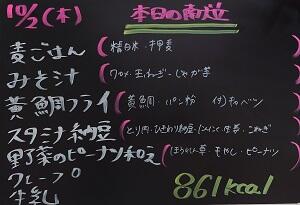 10/2(木) 本日の献立
麦ごはん (精白米・押麦
みそ汁 (ワカメ・玉ねぎ・じゃが芋
黄鯛フライ (黄鯛・パン粉 付)キャベツ
スタミナ納豆 (とり肉・ひきわり納豆・にんにく・生姜・こねぎ
野菜のピーナツ和え (ほうれん草・もやし・ピーナツ
クレープ
牛乳 861kcal